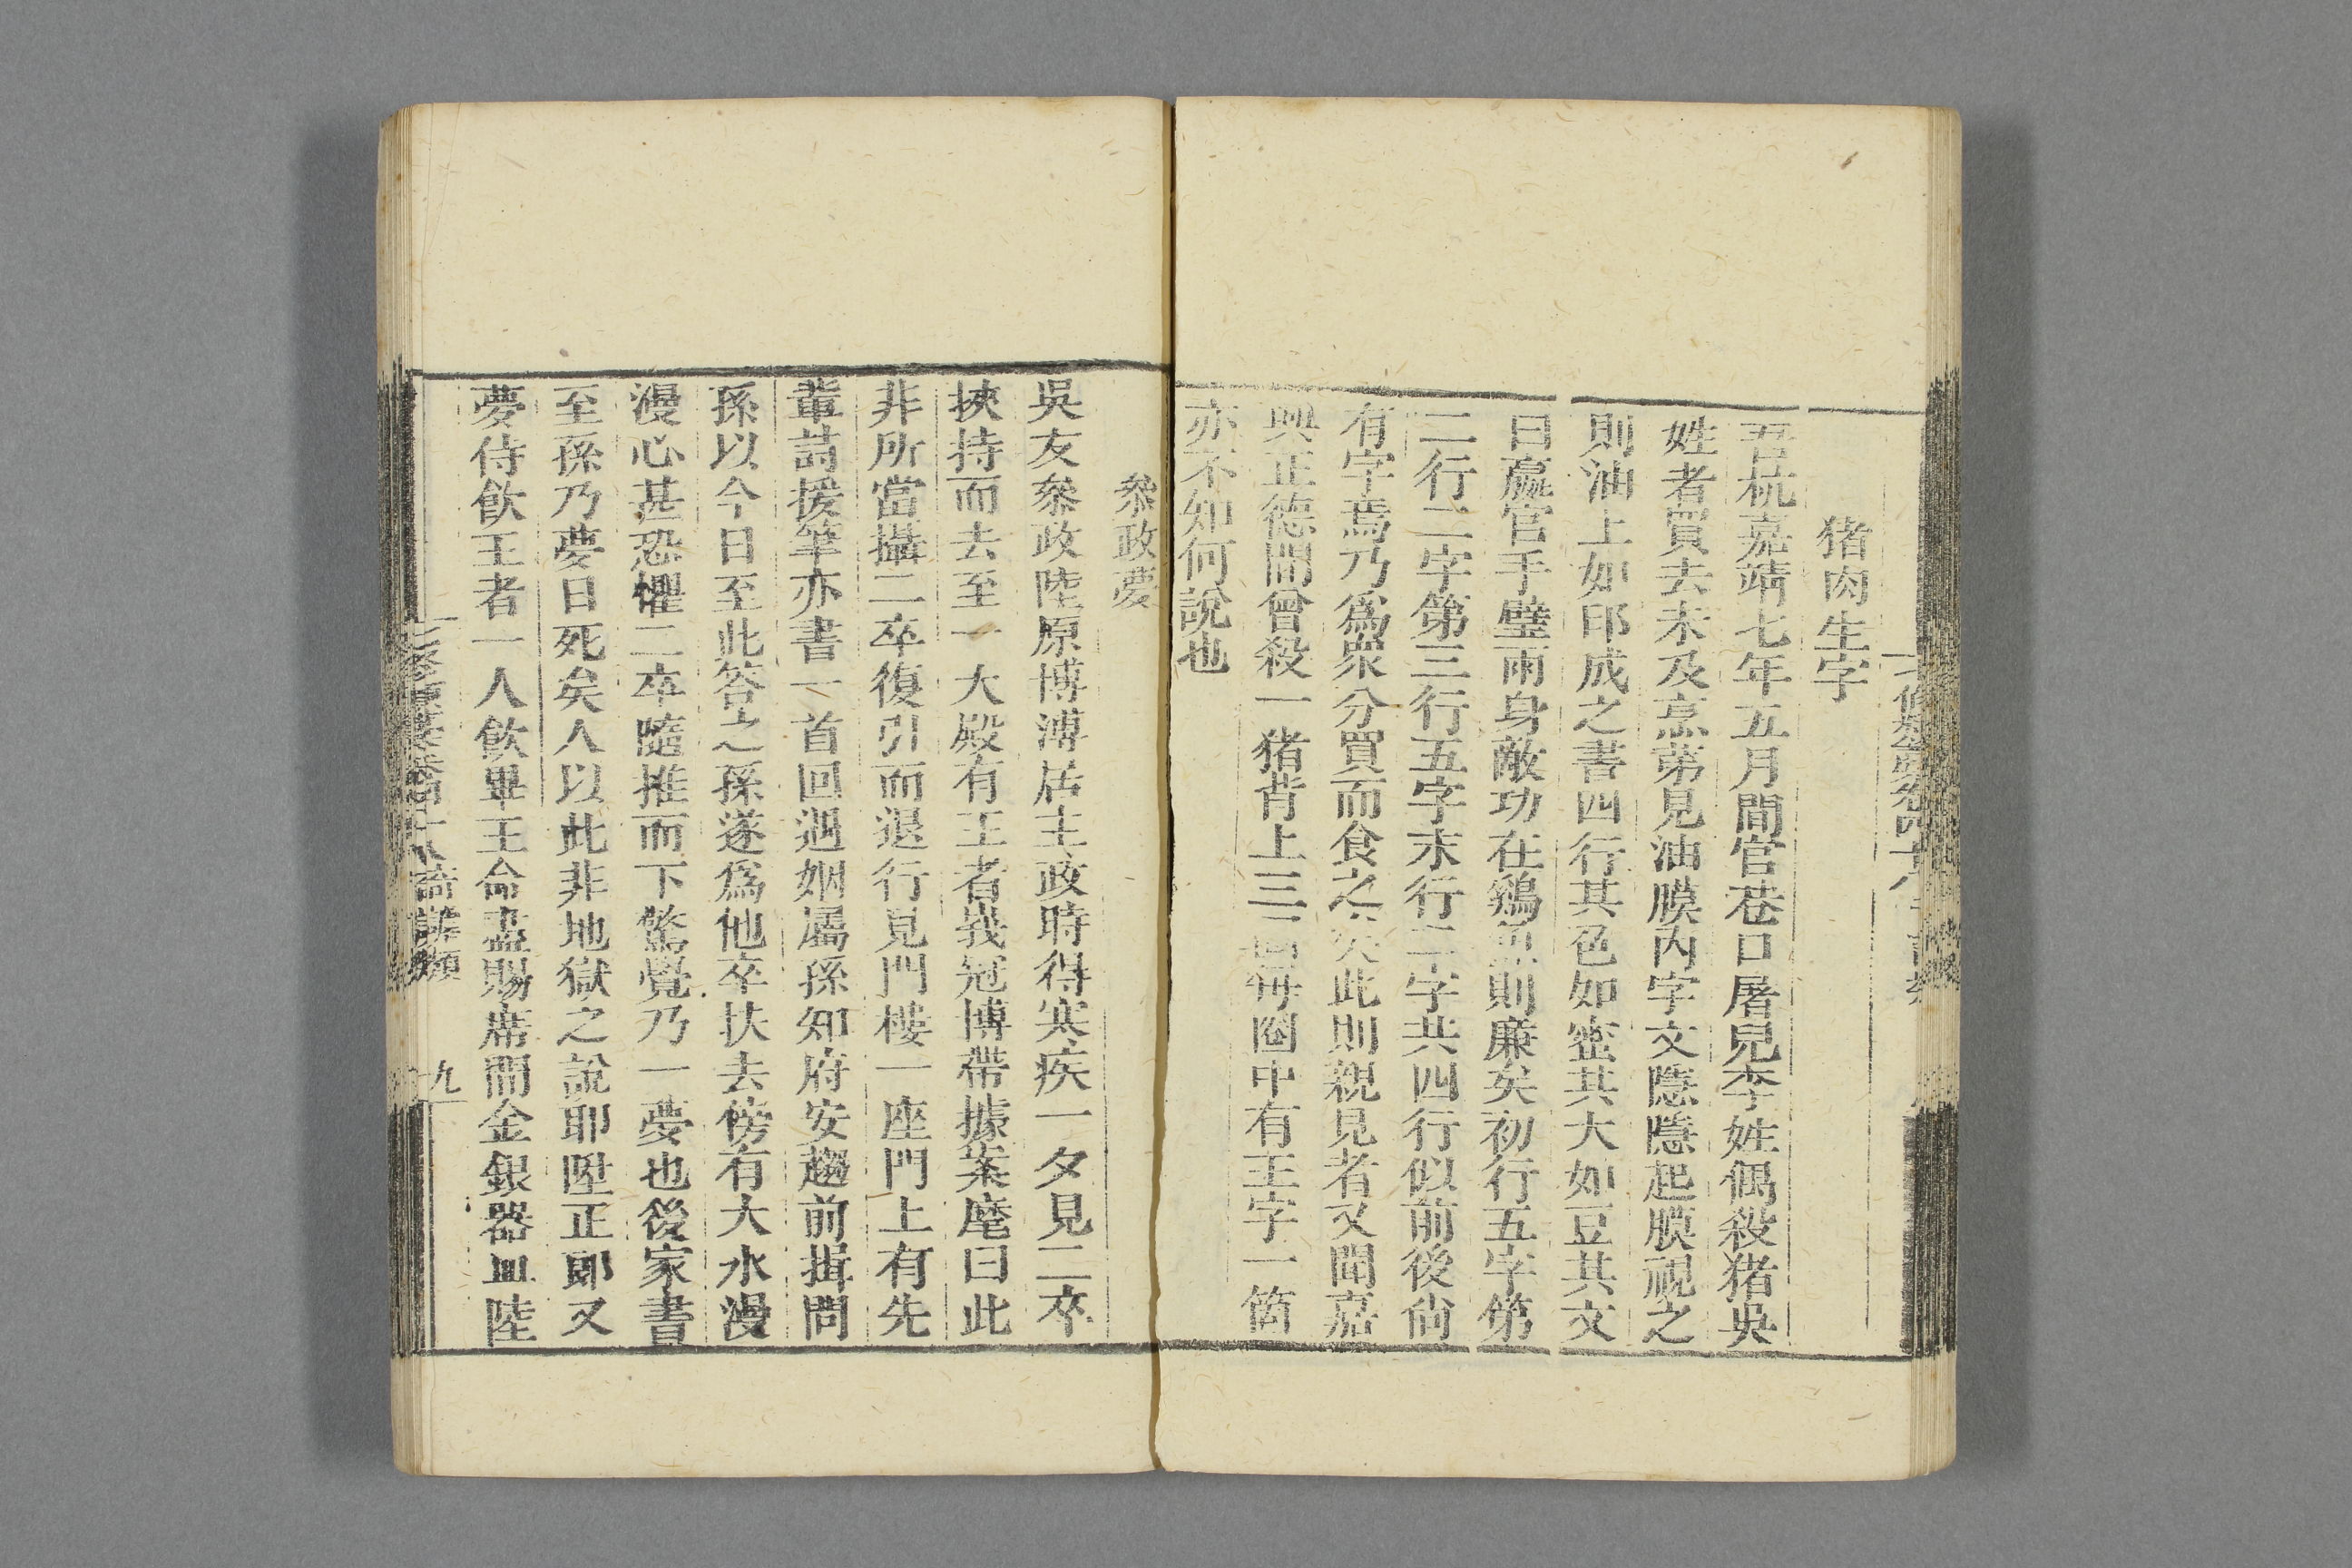 猪肉生字
吾杭嘉靖七年五月間官巷口屠兒李姓偶殺猪吳
姓者買去未及烹苐見油膜內字文隱隱起膜視之
則油上如印成之書四行其色如蜜其大如豆其文
曰嬴官手璧兩身敵功在鷄 則廉矣初行五字第
二行二字第三行五字末行二字共四行似前後尙
有字焉乃爲衆分買而食之矣此則親見者又聞嘉
興正德間曾殺一猪背上三 每圈中有王字一箇
亦不知何說也
叅政夢
吳友叅政陸原博溥居主政時得寒疾一夕見二卒
挾持而去至一大殿有王者峩冠博帶據案麾曰此
非所當攝二卒復引而退行見門樓一座門上有先
輩詩援筆亦書一首回遇姻屬孫知府安趨前揖問
孫以今日至此答之孫遂爲他卒扶去傍有大水漫
漫心甚恐懼二卒隨推而下驚覺乃一夢也後家書
至孫乃夢日死矣人以此非地獄之說耶陞正郎又
夢侍飲王者一人飲畢王命盡賜席間金銀器皿陸
七修類藁卷四十八 奇謔類 九